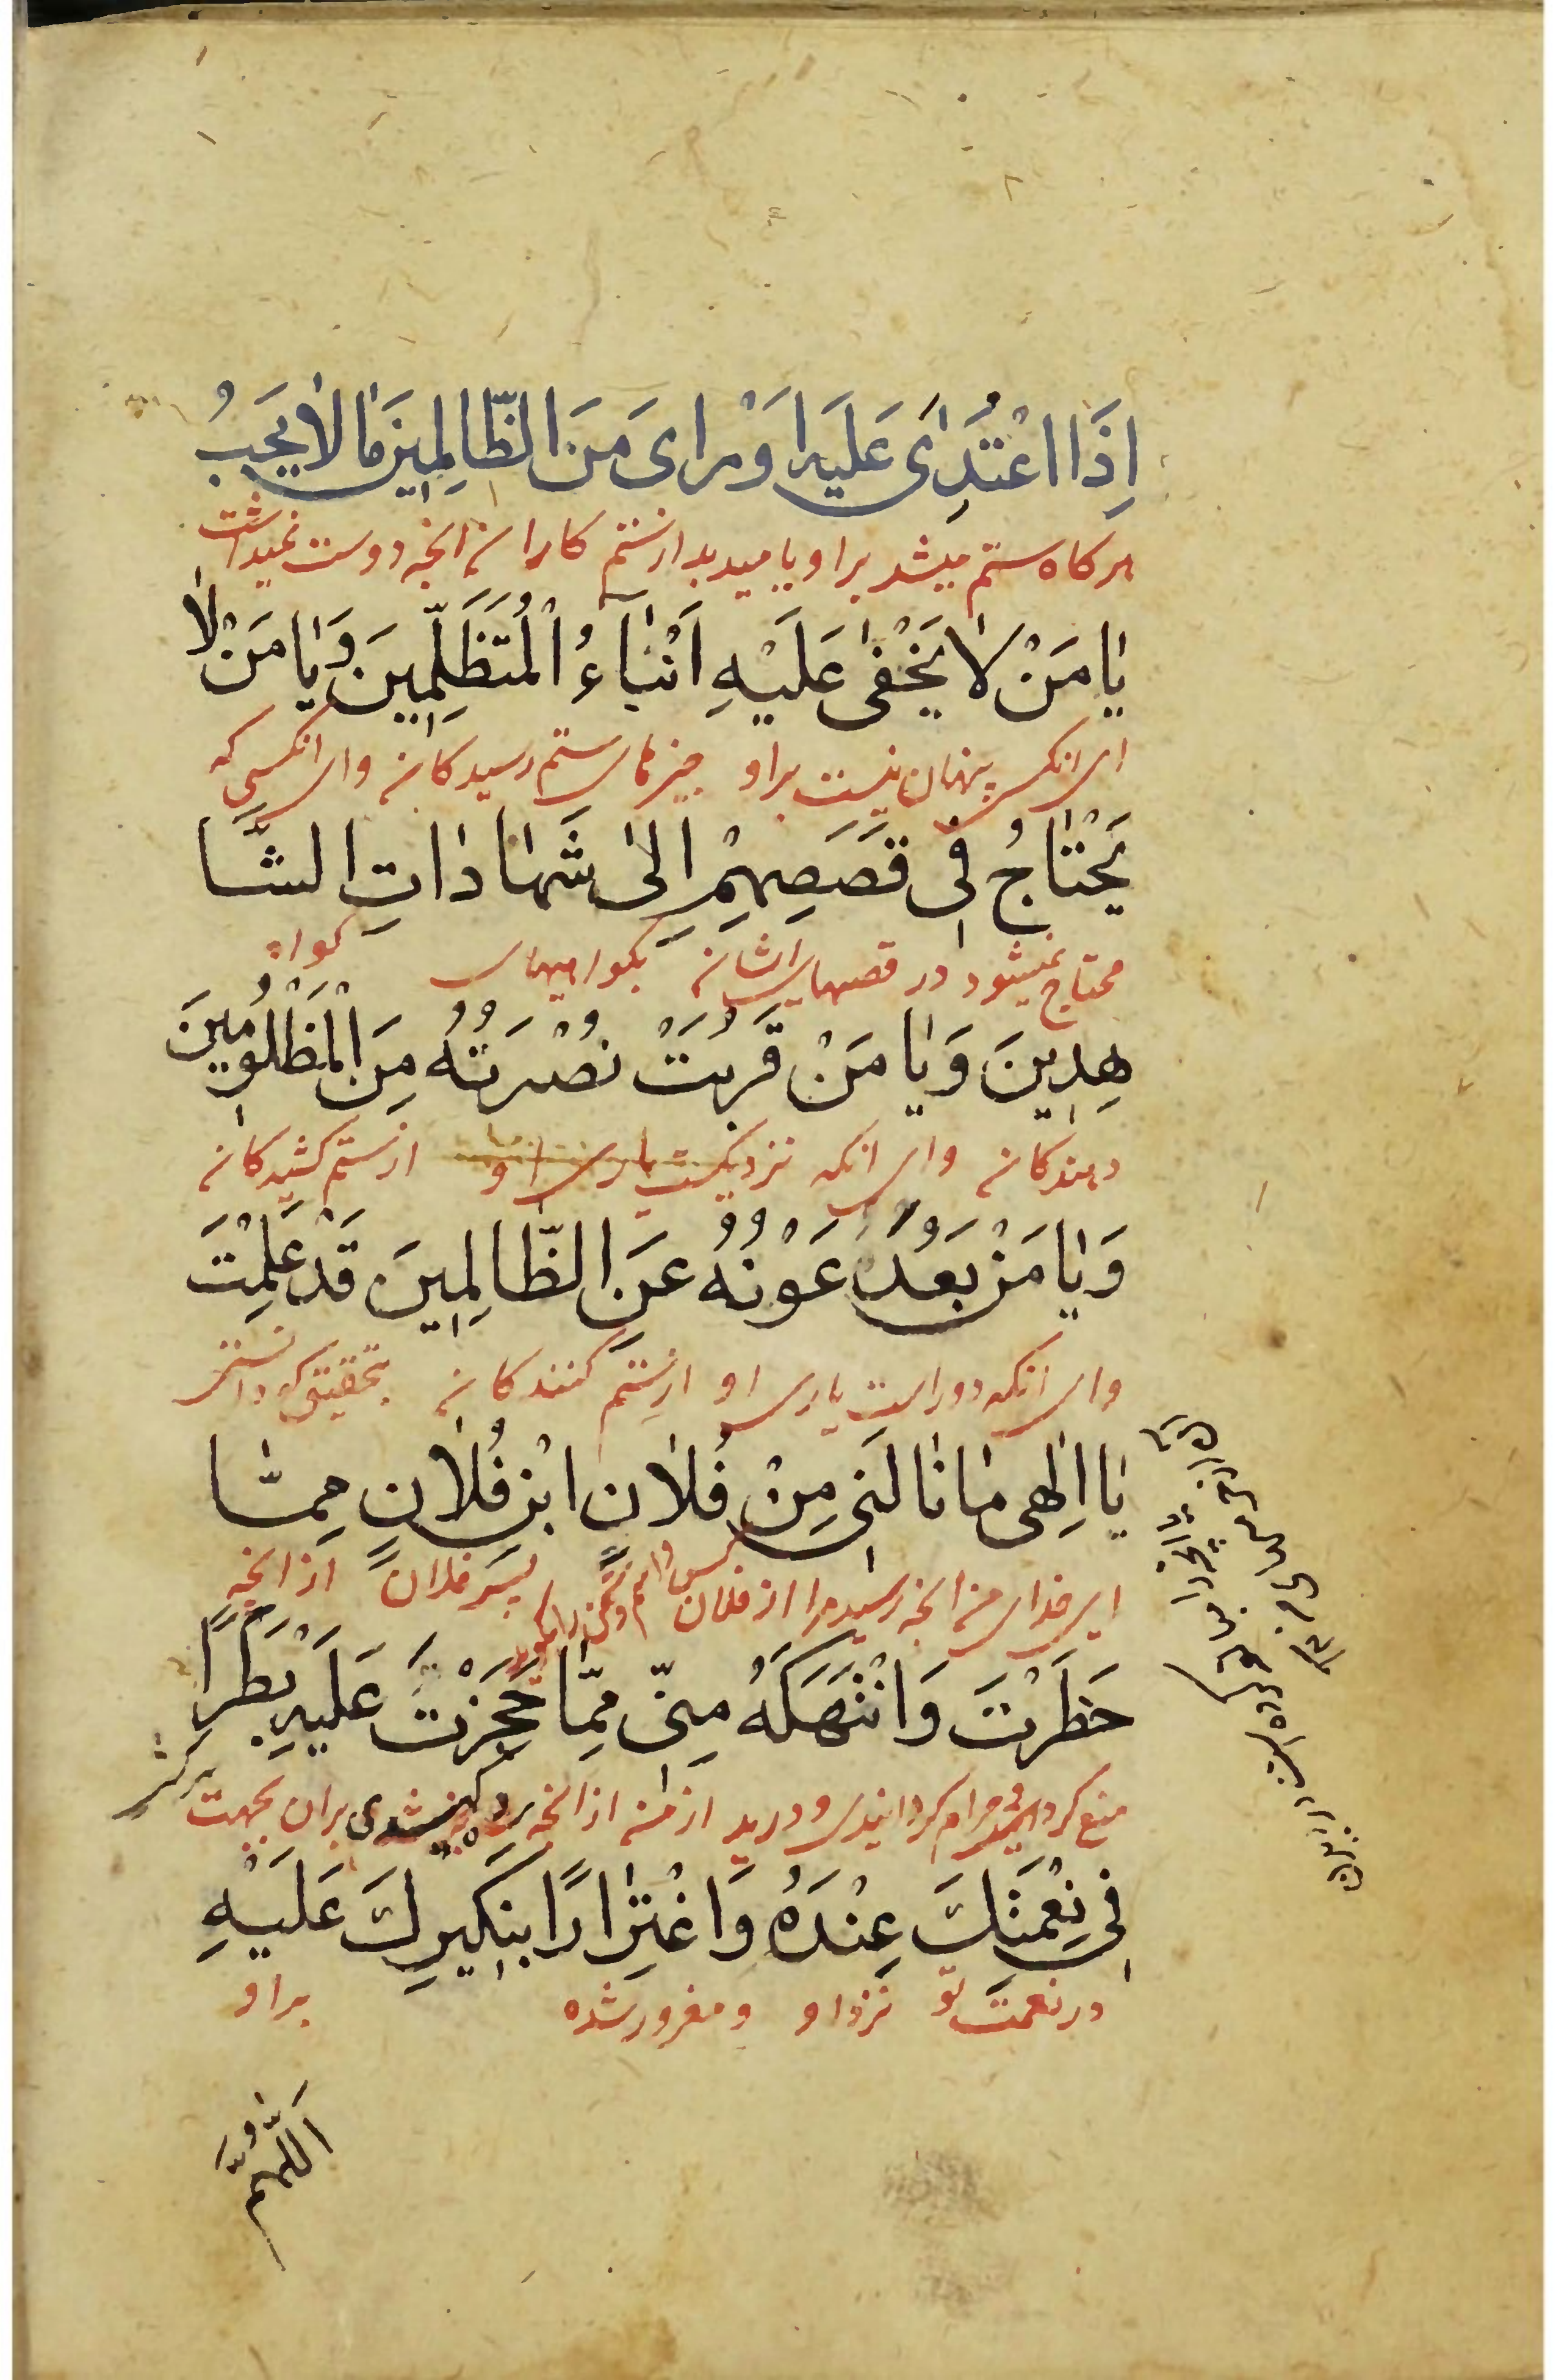 اِذَا اعْتُدِىَ عَلَيْهِ اَوْ رَاى مِنَ الظّالِمينَ مٰا لاٰ يُحِبُّ
هر كاه ستم ميشد بر او يا ميديد از ستم كاران انچه دوست نميداشت
يٰا مَنْ لاٰ يَخْفىٰ عَلَيْهِ اَنْبٰآءُ الْمُتَظَلِّمينَ وَيٰا مَنْ لاٰ
اى انكس پنهان نيست بر او چيزهاى ستم رسيدكان واى انكسى كه
يَحْتٰاجُ فى قَصَصِهِمْ اِلىٰ شَهٰادٰاتِ الشّا
محتاج نميشود در قصهاى ايشان بكواهيهاى كواه
هِدينَ وَيٰا مَنْ قَرُبَتْ نُصْرَتُهُ مِنَ الْمَظْلُومينَ
دهندكان واى انكه نزديكست يارى او از ستم كشيدكان
وَيٰا مَنْ بَعُدَ عَوْنُهُ عَنِ الظّالِمينَ قَدْ عَلِمْتَ
واى انكه دور است يارى او از ستم كنندكان بتحقيق كه دانستى
يٰا اِلٰهى مٰا نٰالَنى مِنْ فُلاٰنِ ابْنِ فُلاٰنٍ مِمّٰا
اى خداى من انچه رسيد مرا از فلان پسر فلان از انچه
حَظَرْتَ وَانْتَهَكَهُ مِنّى مِمّا حَجَزْتَ عَلَيْهِ بَطَرًا
منع كردى حرام كردانيدى ودريد از من از انچه بر ان بجهت
فى نِعْمَتِكَ عِنْدَهُ وَاغْتِرٰارًا بِنَكيرِكَ عَلَيْهِ
در نعمت تو نزد او ومغرور شده بر او
اَللّٰهُمَّ